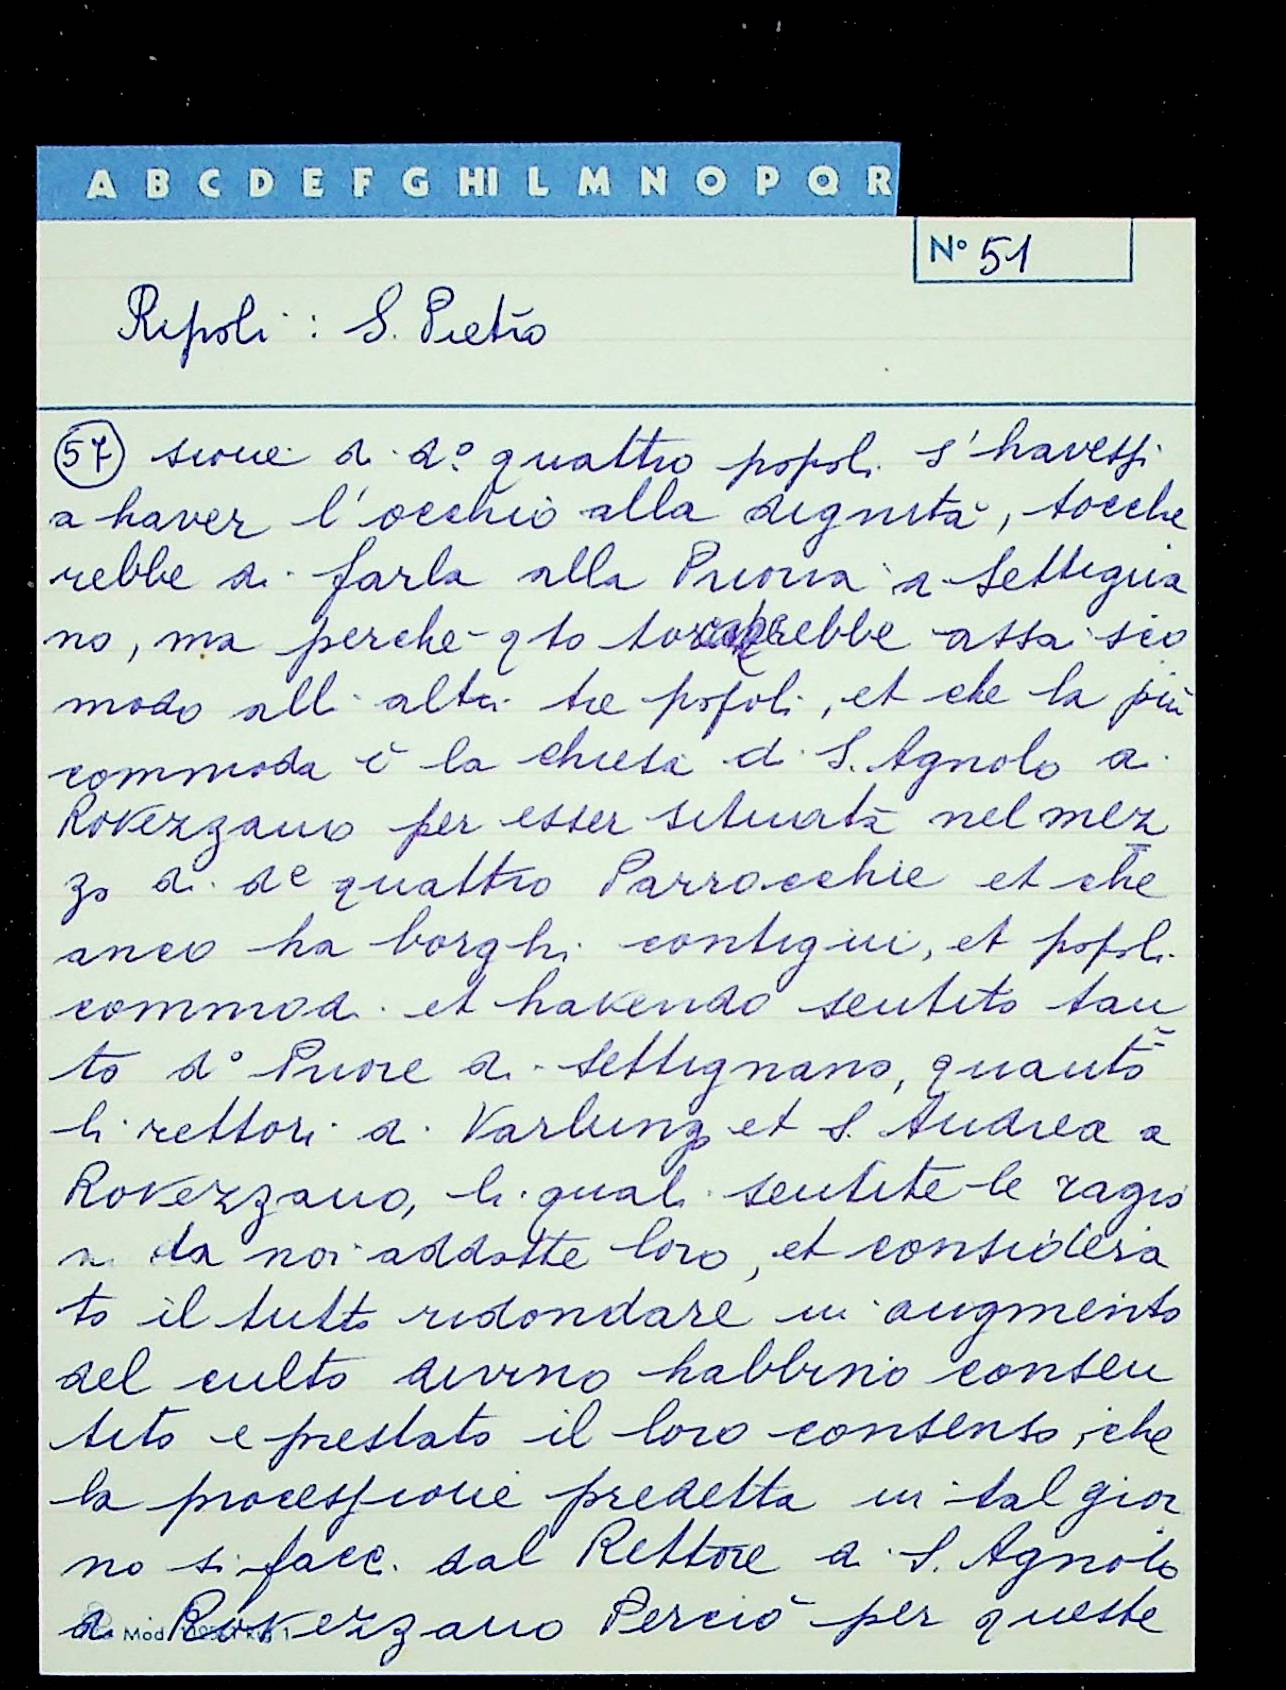 A B C D E F G HI L M N O P Q R
N° 51
Ripoli : S. Pietro
57 sione di d.° quattro popoli s'havessi
a haver l'occhio alla dignità, tocche
rebbe di farla alla Prioria a Settigna
no, ma perche q to rebbe assai sco
modo alli altri tre popoli, et che la più
commoda è la chiesa di S. Agnolo a
Rovezzano per esser situata nel mez
zo di d e quattro Parrocchie et che
anco ha borghi contigui, et popoli
commodi et havendo sentito tan
to d° Priore di Settignano, quanto
li rettori di Varlungo et S. Andrea a
Rovezzano, li quali sentite le ragio
ni da noi addotte loro, et considera
to il tutto ridondare in augmento
del culto divino habbino consen
tito e prestato il loro consenso, che
la processione predetta in tal gior
no si facc. dal Rettore di S. Agnolo
a Rovezzano Perciò per queste
Mod.